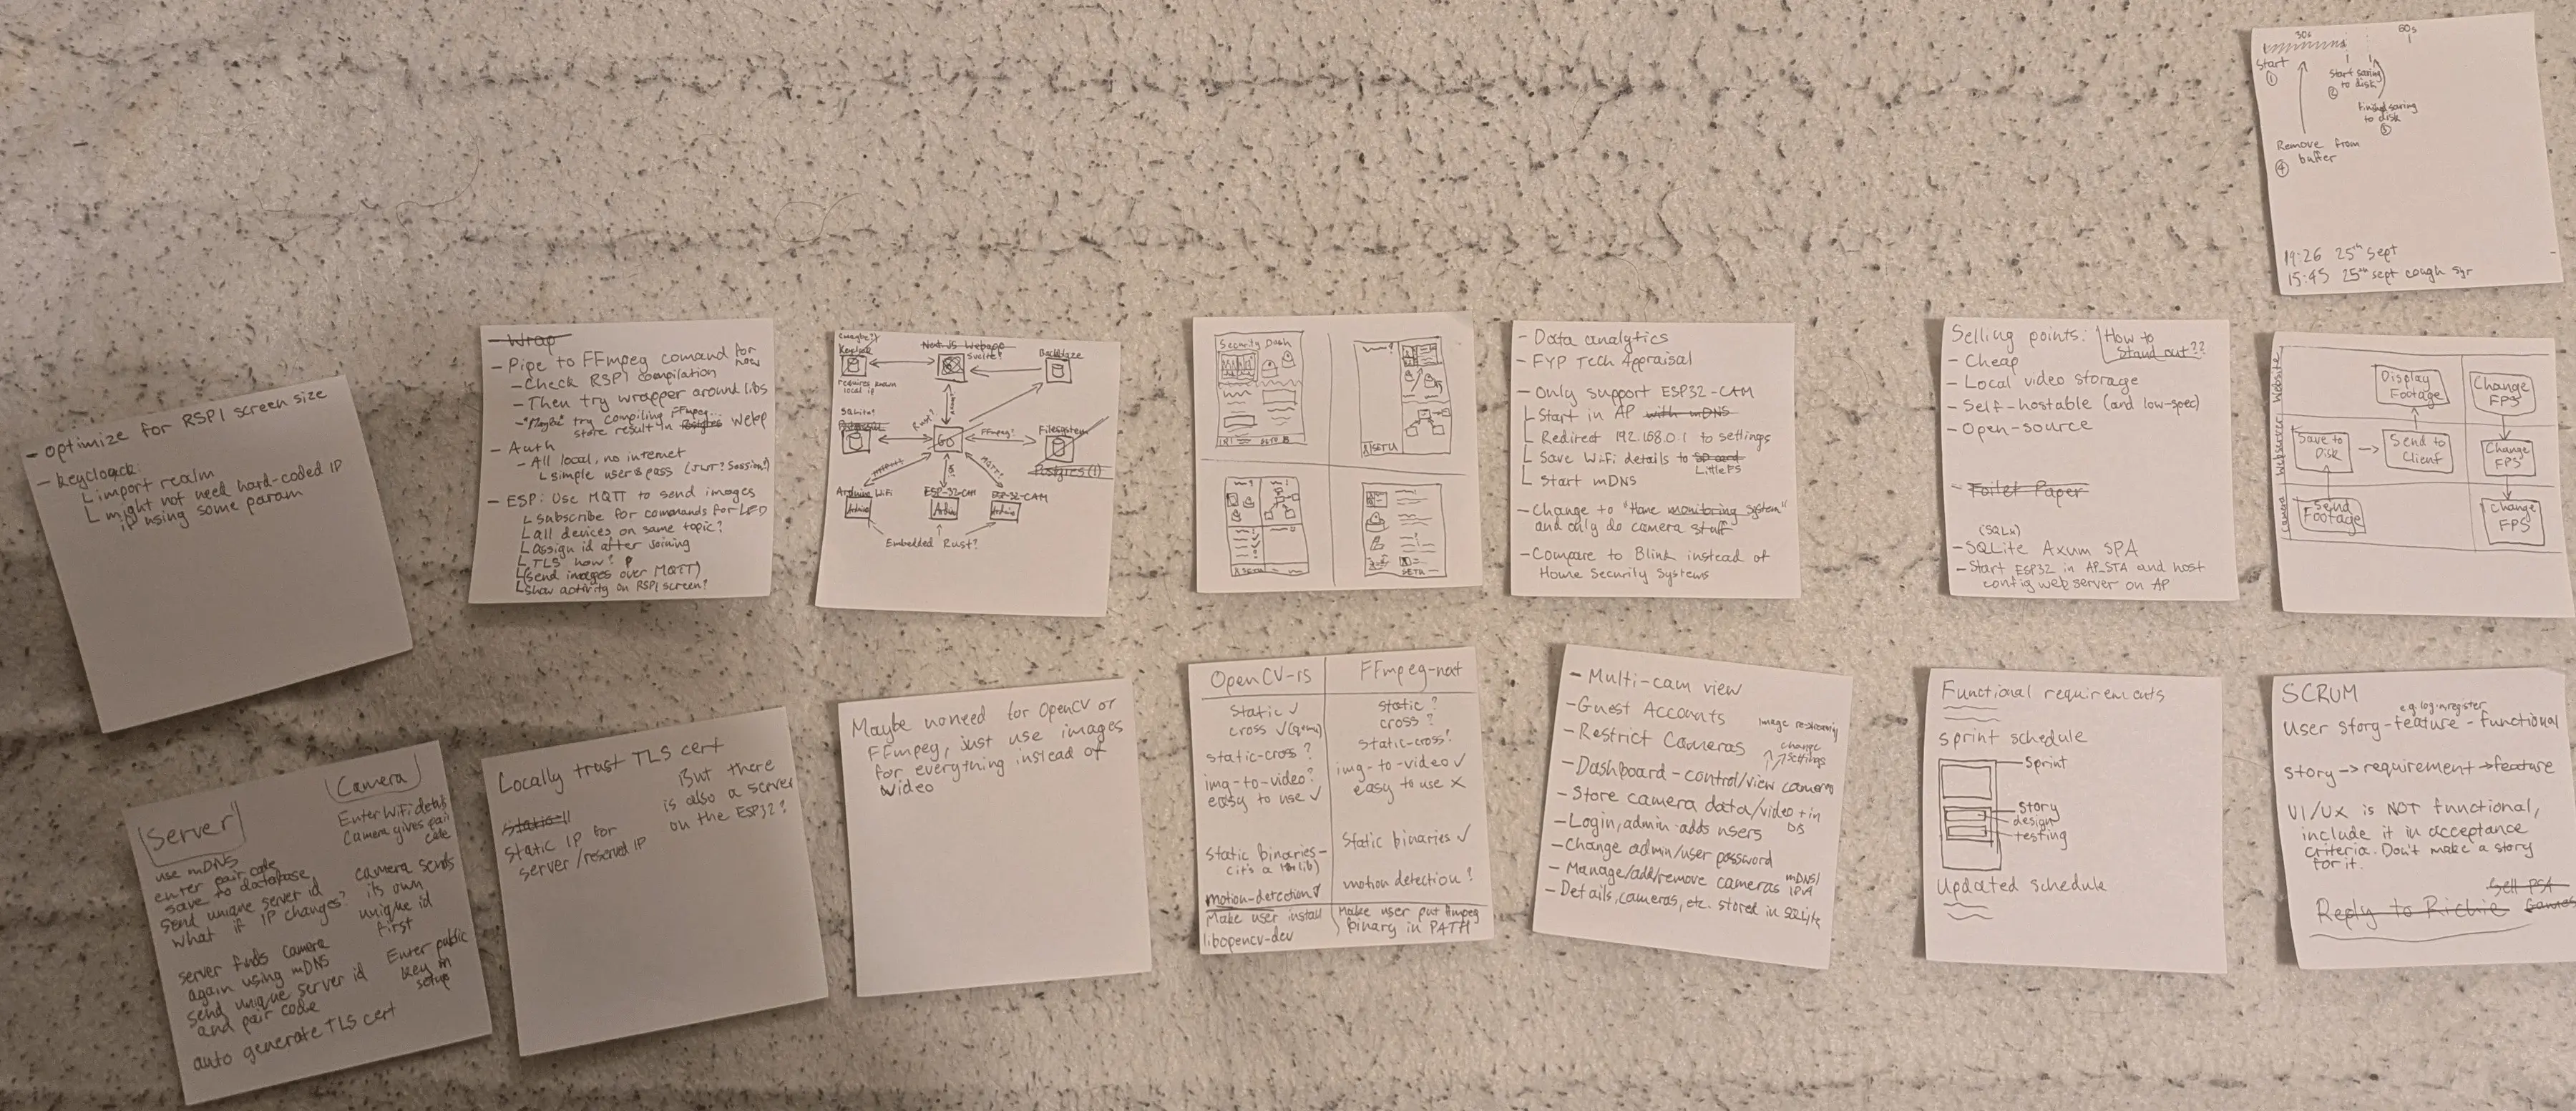 30s
60s
Start
①
Start saving
to disk
②
Finished saving
to disk
③
Remove from
buffer
④
19:26 25th Sept
15:45 25th sept cough syr
- Optimize for RSPI screen size
- Keycloack
import realm
might not need hard-coded IP
IP using some param
- Wrap
- Pipe to FFmpeg comand for now
- Check RSPI compilation
- Then try wrapper around libs
- "Maybe" try compiling FFmpeg...
store result in Postgres webp
- Auth
- All local, no internet
simple user & pass (JWT? Session?)
- ESP: Use MQTT to send images
subscribe for commands for LED
all devices on same topic?
assign id after joining
TLS how?
(send images over MQTT)
show activity on RSPI screen?
(maybe?)
Keycloak
requires known
local ip
Next JS Webapp
Svelte?
Backblaze
SQLite?
Rust?
GO
FFmpeg?
Filesystem
Postgres (1)
MQTT?
Arduino WiFi
Arduino
ESP-32-CAM
Arduino
ESP-32-CAM
Arduino
Embedded Rust?
Security Dash
SETU
SETU
SETU
SETU
- Data analytics
- FYP Tech Appraisal
- Only support ESP32-CAM
Start in AP with mDNS
Redirect 192.168.0.1 to settings
Save WiFi details to SD card
LittleFS
Start mDNS
- Change to "Home monitoring system"
and only do camera stuff
- Compare to Blink instead of
Home Security Systems
Selling points:
How to
Stand out??
- Cheap
- Local video storage
- Self-hostable (and low-spec)
- Open-source
- Toilet Paper
(SQLx)
- SQLite Axum SPA
- Start ESP32 in AP_STA and host
config web server on AP
Website
Display
Footage
Change
FPS
Webserver
Save to
Disk
Send to
Client
Change
FPS
Camera
Send
Footage
Change
FPS
Server
use mDNS
enter pair code
save to database,
send unique server id
what if IP changes?
server finds camera
again using mDNS
send unique server id
and pair code
auto generate TLS cert
Camera
Enter WiFi details
Camera gives pair
code
camera sends
its own
unique id
first
Enter public
key in
setup
Locally trust TLS cert
Static Il
static IP for
server/reserved IP
But there
is also a server
on the ESP32?
Maybe no need for OpenCV or
FFmpeg, just use images
for everything instead of
video
OpenCV-rs
static ✓
cross ✓(qemu)
static-cross ?
img-to-video?
easy to use ✓
static binaries-
(it's a lib)
motion-detection✓
Make user install
libopencv-dev
FFmpeg-next
static ?
cross ?
static-cross?
img-to-video ✓
easy to use X
Static binaries ✓
motion detection ?
Make user put ffmpeg
binary in PATH
- Multi-cam view
- Guest Accounts
image restreaming
- Restrict Cameras
change
settings
- Dashboard - control/view cameras
- Store camera data/video + in
DB
- Login, admin adds users
- Change admin/user password
- Manage/add/remove cameras mDNS/
IPv4
- Details, cameras, etc. stored in SQLite
Functional requirements
sprint schedule
Sprint
story
design
testing
Updated schedule
SCRUM
e.g. login, register
User story - feature - functional
story -> requirement -> feature
UI/UX is NOT functional,
include it in acceptance
criteria. Don't make a story
for it.
Sell PS4
Games
Reply to Richie